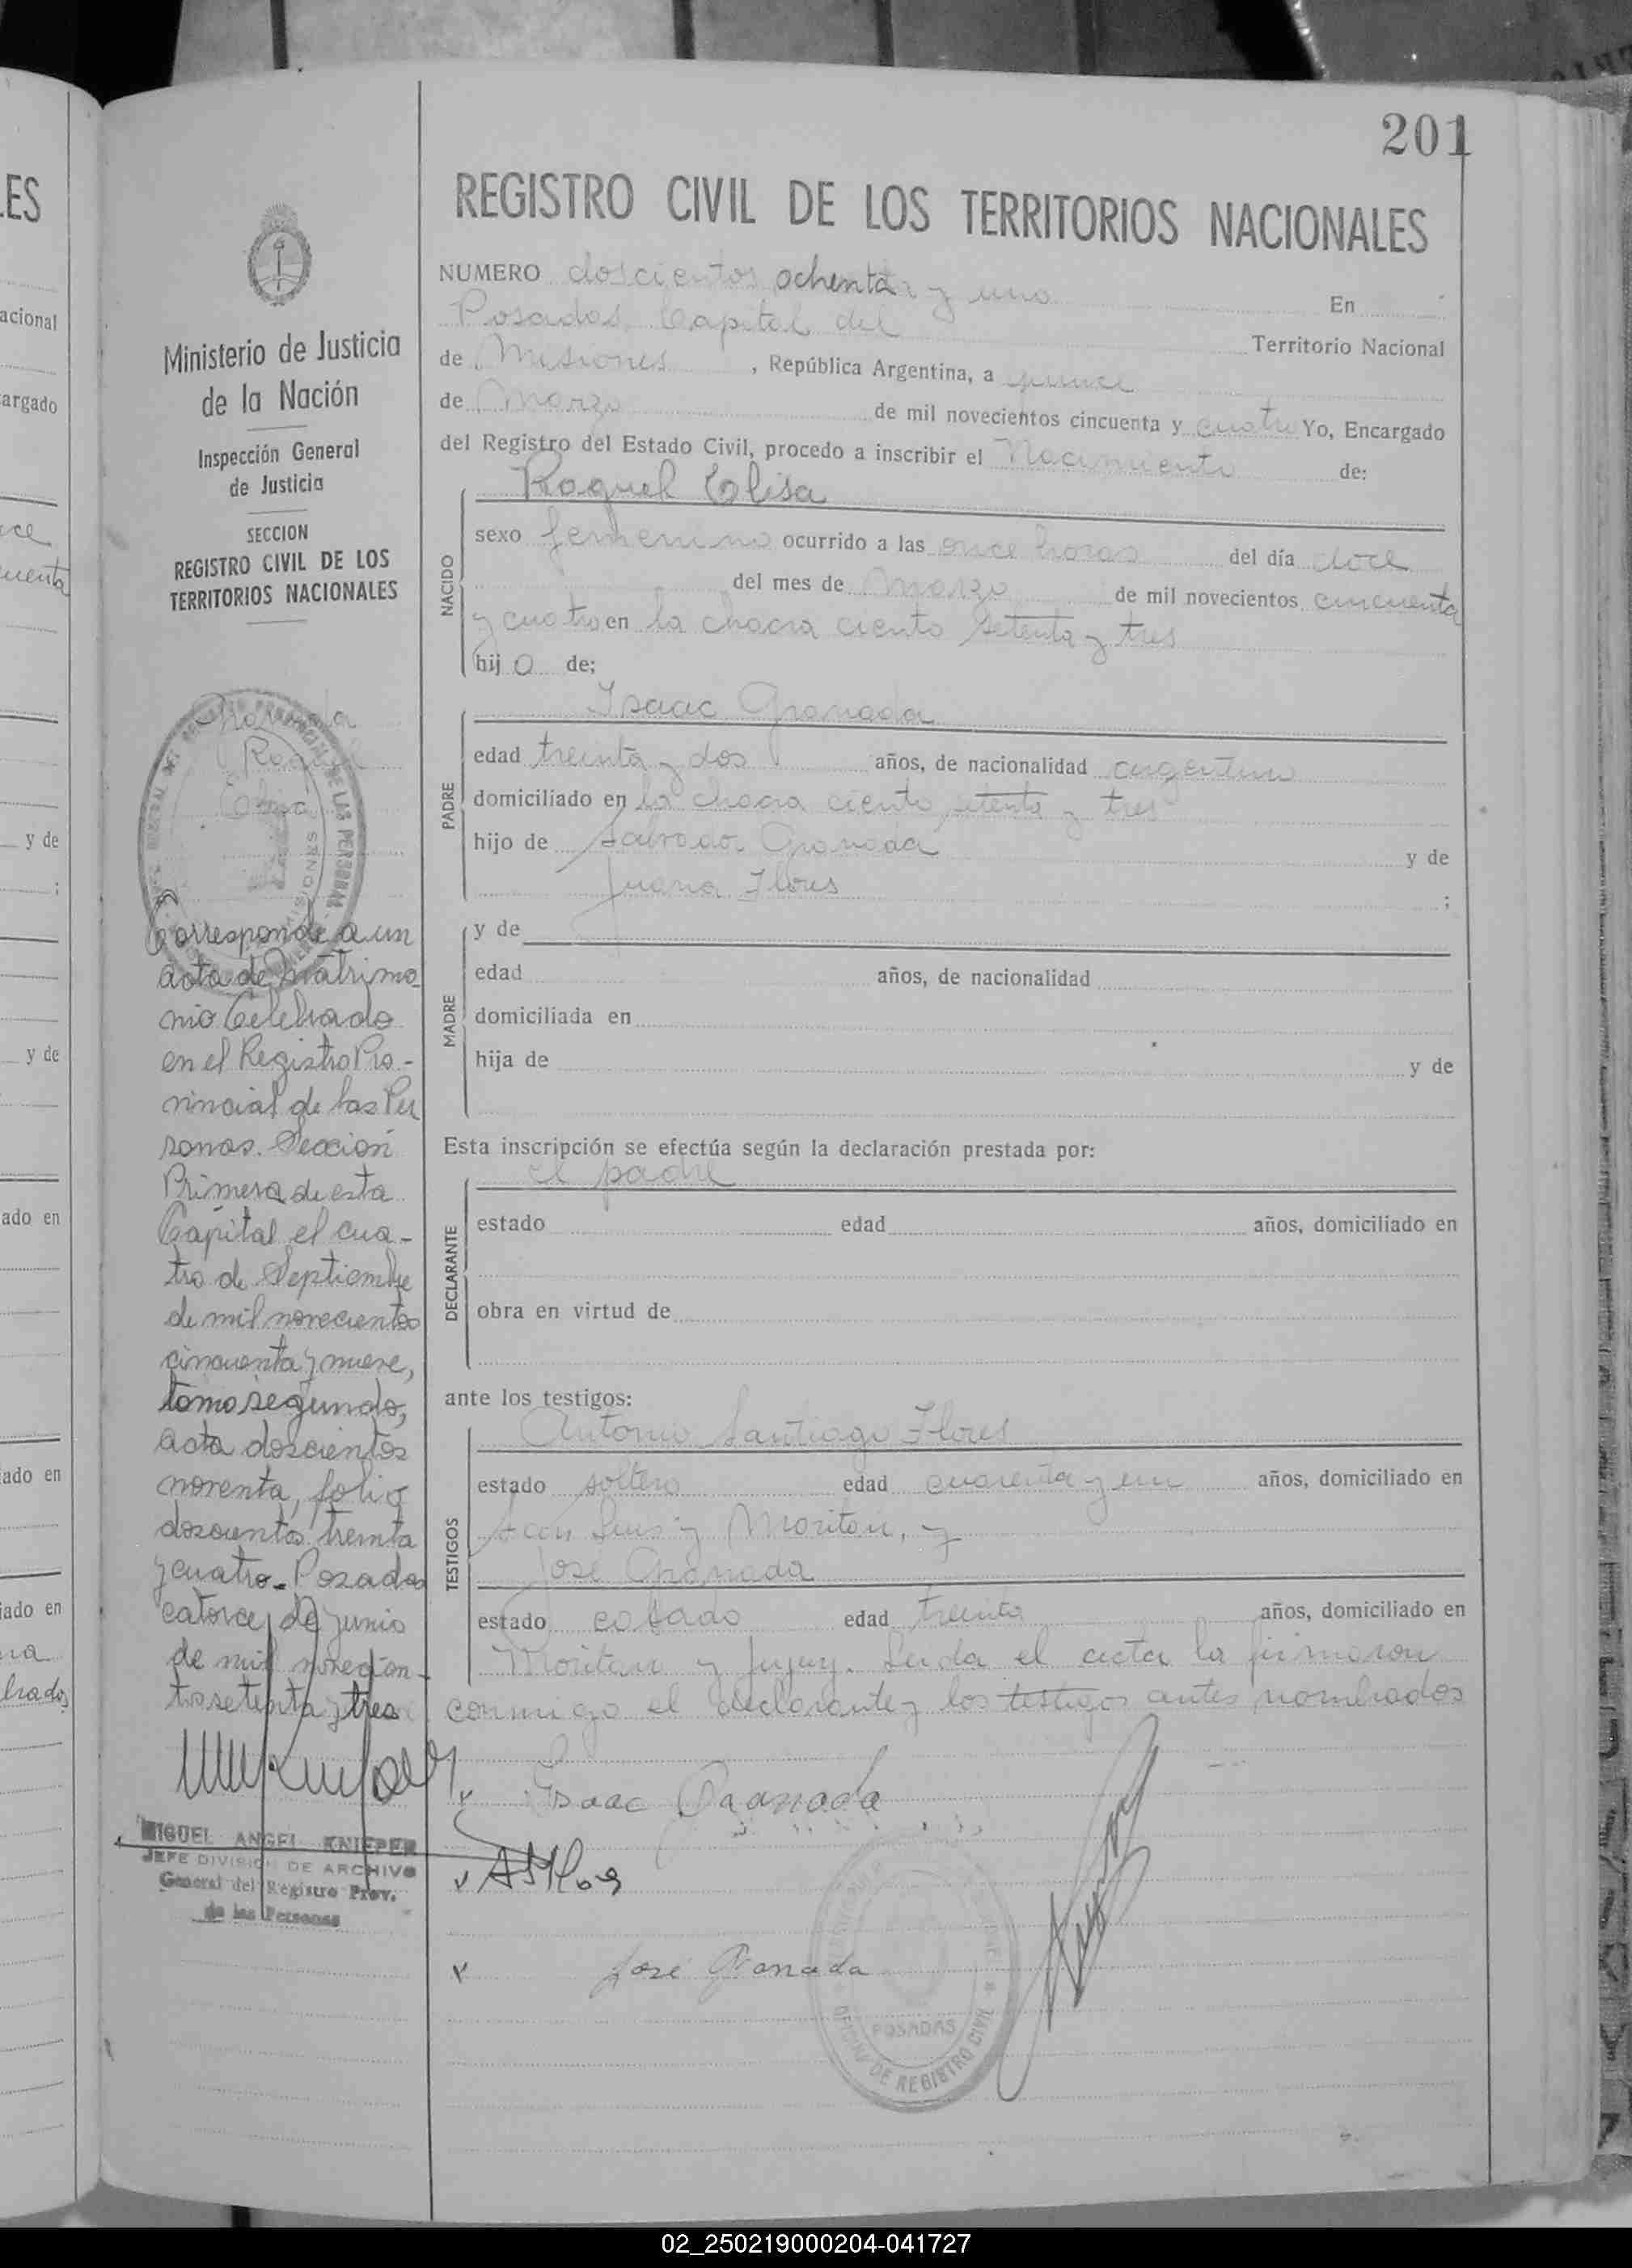 201
REGISTRO CIVIL DE LOS TERRITORIOS NACIONALES
NUMERO doscientos ochenta y uno En
Posadas Capital del Territorio Nacional
de Misiones, República Argentina, a quince
de Marzo de mil novecientos cincuenta y cuatro Yo, Encargado
del Registro del Estado Civil, procedo a inscribir el Nacimiento de:
Raquel Elisa
NACIDO
sexo femenino ocurrido a las once horas del día doce
del mes de Marzo de mil novecientos cincuenta
y cuatro en la chacra ciento setenta y tres
hij a de;
Isaac Granada
PADRE
edad treinta y dos años, de nacionalidad argentino
domiciliado en la chacra ciento setenta y tres
hijo de Salvador Granada y de
Juana Flores ;
MADRE
y de
edad años, de nacionalidad
domiciliada en
hija de y de
Esta inscripción se efectúa según la declaración prestada por:
el padre
DECLARANTE
estado edad años, domiciliado en
obra en virtud de
ante los testigos:
Antonio Santiago Flores
TESTIGOS
estado soltero edad cuarenta y un años, domiciliado en
San Luis y Moritan, y
José Granada
estado casado edad treinta años, domiciliado en
Moritan y Jujuy. Leida el acta la firmaron
conmigo el declarante y los testigos antes nombrados
Isaac Granada
José Granada
POSADAS
OFICINA DE REGISTRO CIVIL
Ministerio de Justicia
de la Nación
Inspección General
de Justicia
SECCION
REGISTRO CIVIL DE LOS
TERRITORIOS NACIONALES
Granada
Raquel
Elisa
DE LAS PERSONAS
MISIONES
Corresponde a un
acta de matrimo
nio Celebrado
en el Registro Pro-
vincial de las Per
sonas. Sección
Primera de esta
Capital el cua-
tro de Septiembre
de mil novecientos
cincuenta y nueve,
tomo segundo,
acta doscientos
noventa, folio
doscientos treinta
y cuatro. Posadas
catorce de junio
de mil novecien-
tos setenta y tres
MIGUEL ANGEL KNIEPER
JEFE DIVISION DE ARCHIVO
General del Registro Prov.
de las Personas
ES
acional
argado
cuenta
y de
;
y de
ado en
ado en
iado en
brados
02_250219000204-041727